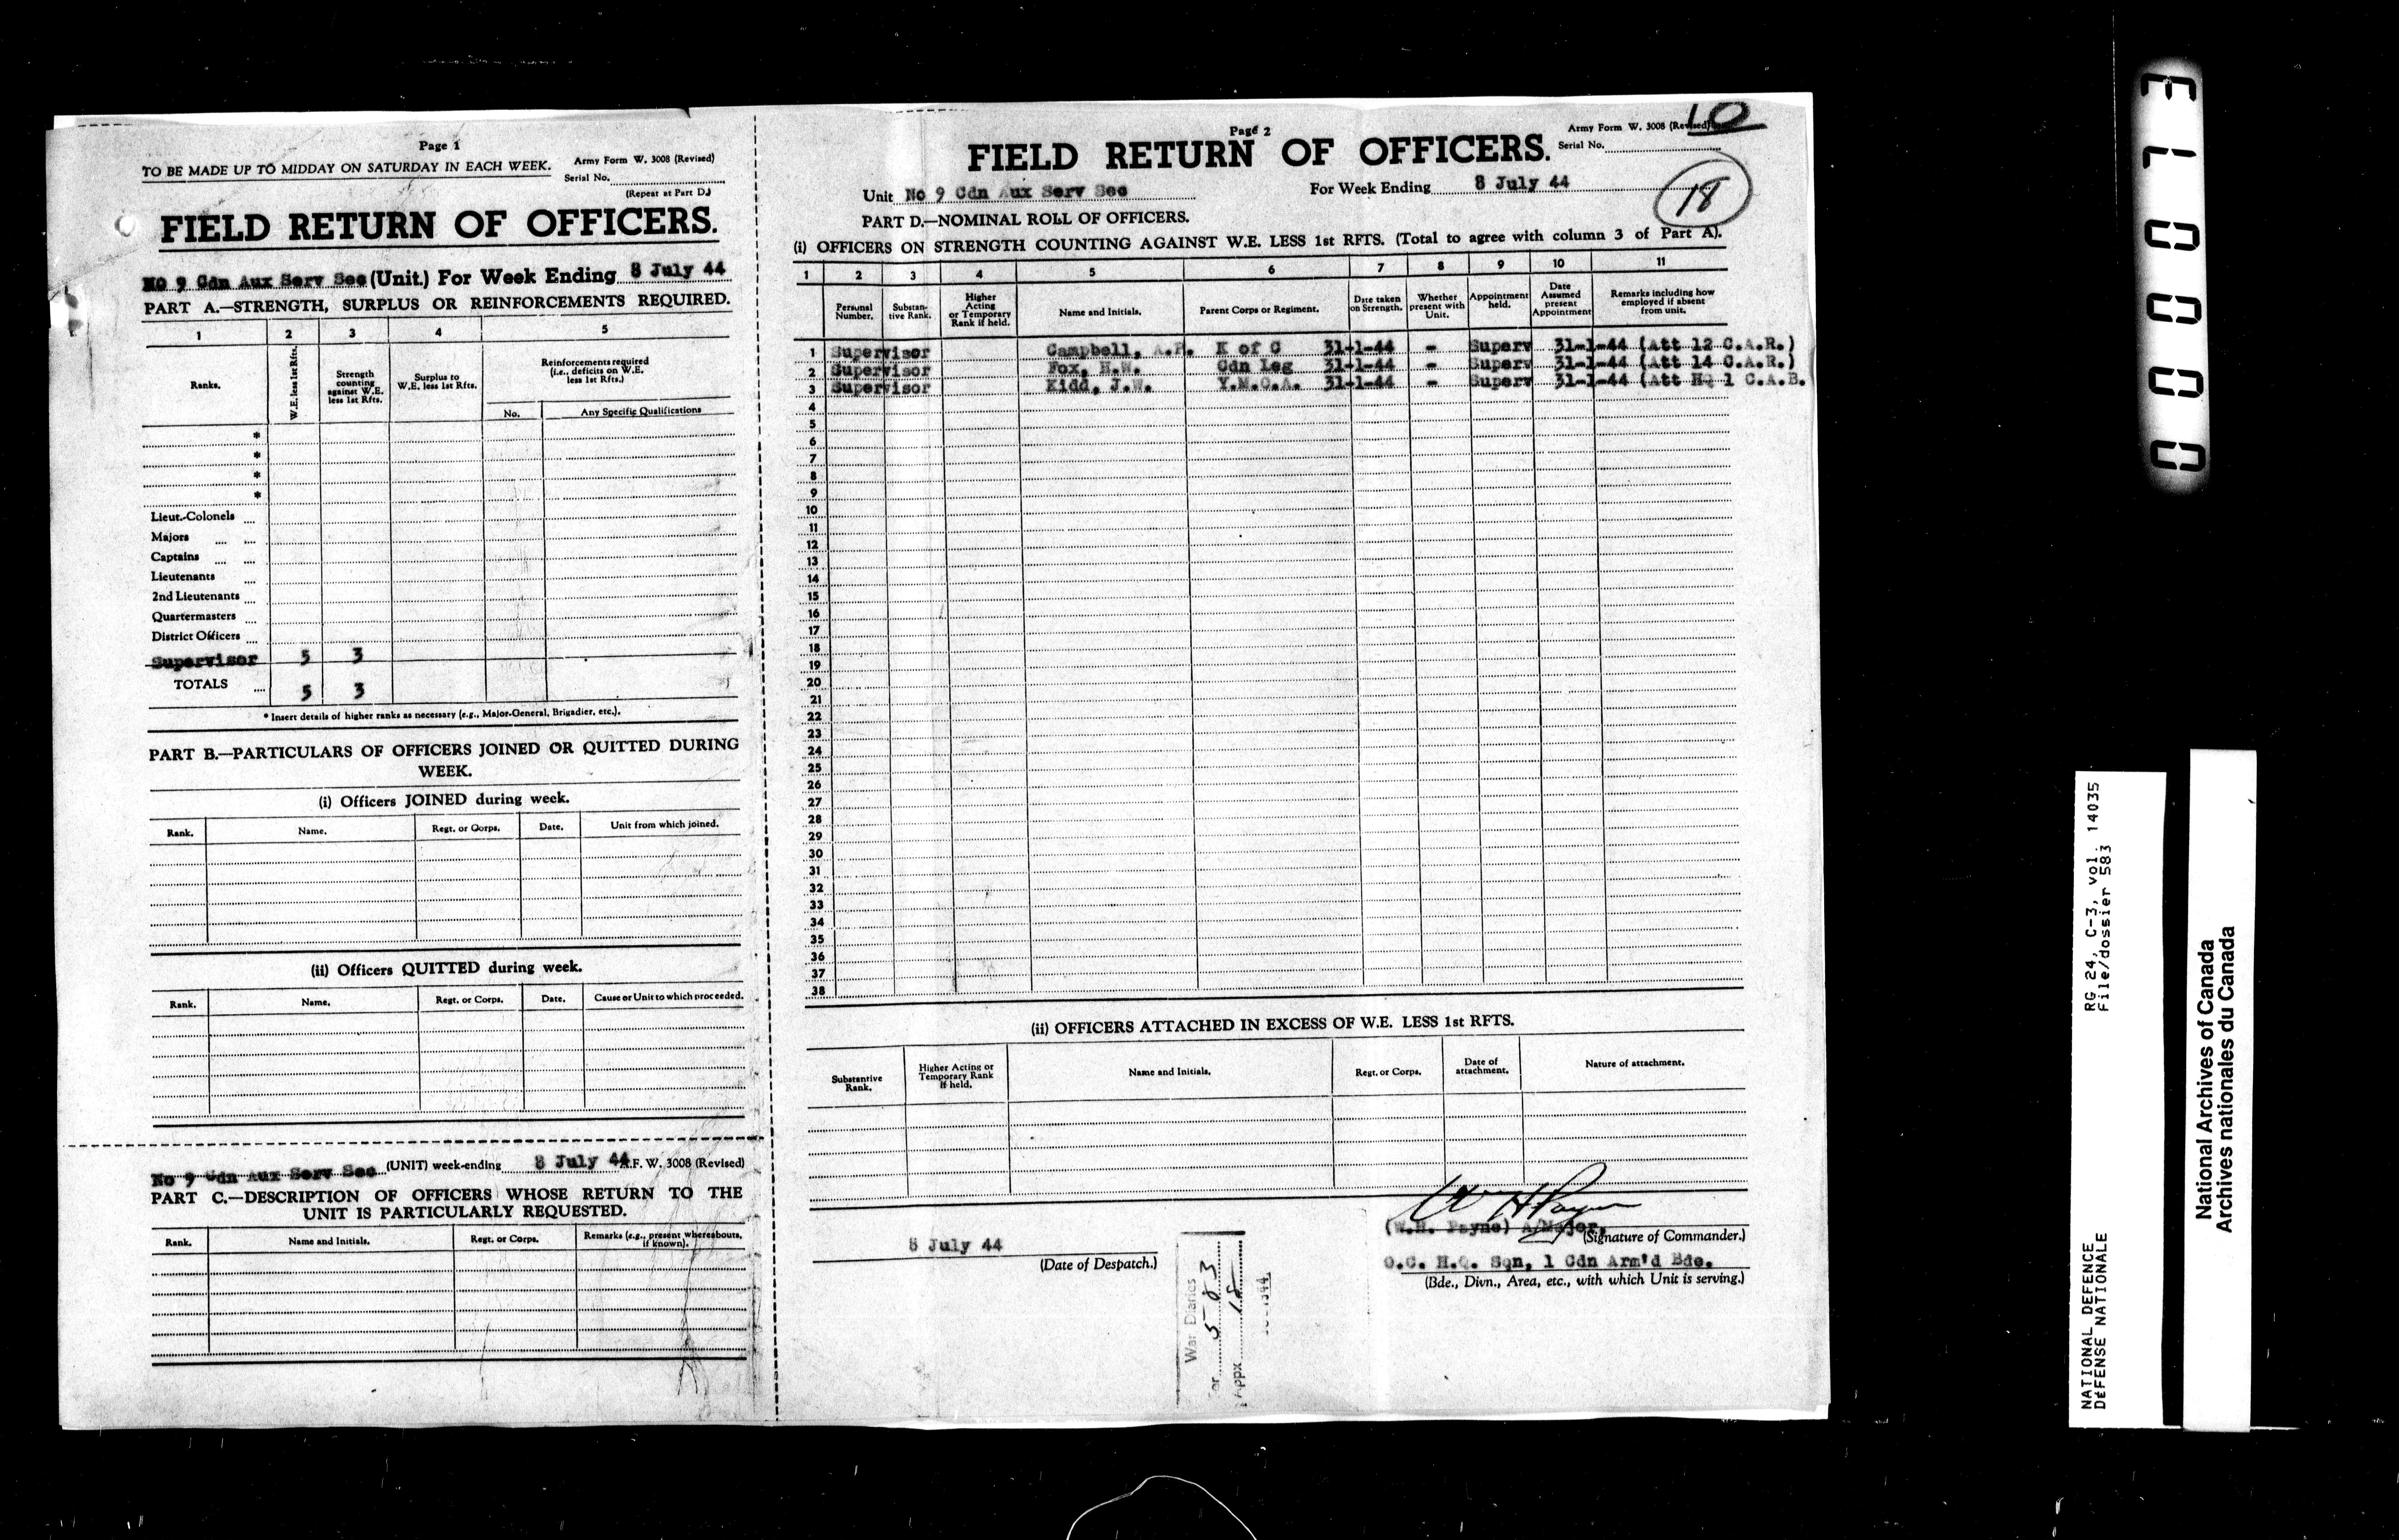 Page 1
TO BE MADE UP TO MIDDAY ON SATURDAY IN EACH WEEK.
Army Form W. 3008 (Revised)
Serial No.
(Repeat at Part D.)
FIELD RETURN OF OFFICERS.
No 9 Cdn Aux Serv Sec (Unit.) For Week Ending 8 July 44
PART A.—STRENGTH, SURPLUS OR REINFORCEMENTS REQUIRED.
1 2 3 4 5
Ranks.
W.E. less 1st Rfts.
Strength counting against W.E. less 1st Rfts.
Surplus to W.E. less 1st Rfts.
Reinforcements required (i.e., deficits on W.E. less 1st Rfts.)
No. Any Specific Qualifications
*
*
*
*
Lieut.-Colonels
Majors
Captains
Lieutenants
2nd Lieutenants
Quartermasters
District Officers
Supervisor 5 3
TOTALS 5 3
* Insert details of higher ranks as necessary (e.g., Major-General, Brigadier, etc.).
PART B.—PARTICULARS OF OFFICERS JOINED OR QUITTED DURING
WEEK.
(i) Officers JOINED during week.
Rank. Name. Regt. or Corps. Date. Unit from which joined.
(ii) Officers QUITTED during week.
Rank. Name. Regt. or Corps. Date. Cause or Unit to which proceeded.
No 9 Cdn Aux Serv Sec (UNIT) week-ending 8 July 44 A.F. W. 3008 (Revised)
PART C.—DESCRIPTION OF OFFICERS WHOSE RETURN TO THE
UNIT IS PARTICULARLY REQUESTED.
Rank. Name and Initials. Regt. or Corps. Remarks (e.g., present whereabouts, if known).
Page 2
10
Army Form W. 3008 (Revised)
Serial No.
FIELD RETURN OF OFFICERS.
Unit No 9 Cdn Aux Serv Sec For Week Ending 8 July 44
18
PART D.—NOMINAL ROLL OF OFFICERS.
(i) OFFICERS ON STRENGTH COUNTING AGAINST W.E. LESS 1st RFTS. (Total to agree with column 3 of Part A).
1 2 3 4 5 6 7 8 9 10 11
Personal Number.
Substantive Rank.
Higher Acting or Temporary Rank if held.
Name and Initials.
Parent Corps or Regiment.
Date taken on Strength.
Whether present with Unit.
Appointment held.
Date Assumed present Appointment
Remarks including how employed if absent from unit.
1 Supervisor Campbell, A.P. K of C 31-1-44 - Superv 31-1-44 (Att 12 C.A.R.)
2 Supervisor Fox, H.W. Cdn Leg 31-1-44 - Superv 31-1-44 (Att 14 C.A.R.)
3 Supervisor Kidd, J.W. Y.M.C.A. 31-1-44 - Superv 31-1-44 (Att HQ 1 C.A.B.
4
5
6
7
8
9
10
11
12
13
14
15
16
17
18
19
20
21
22
23
24
25
26
27
28
29
30
31
32
33
34
35
36
37
38
(ii) OFFICERS ATTACHED IN EXCESS OF W.E. LESS 1st RFTS.
Substantive Rank.
Higher Acting or Temporary Rank if held.
Name and Initials.
Regt. or Corps.
Date of attachment.
Nature of attachment.
W H Payne
(W.H. Payne) A/Major,
(Signature of Commander.)
8 July 44
(Date of Despatch.)
O.C. H.Q. Sqn, 1 Cdn Arm'd Bde.
(Bde., Divn., Area, etc., with which Unit is serving.)
War Diaries
583
Appx 18
RG 24, C-3, vol. 14035
File/dossier 583
NATIONAL DEFENCE
DÉFENSE NATIONALE
National Archives of Canada
Archives nationales du Canada